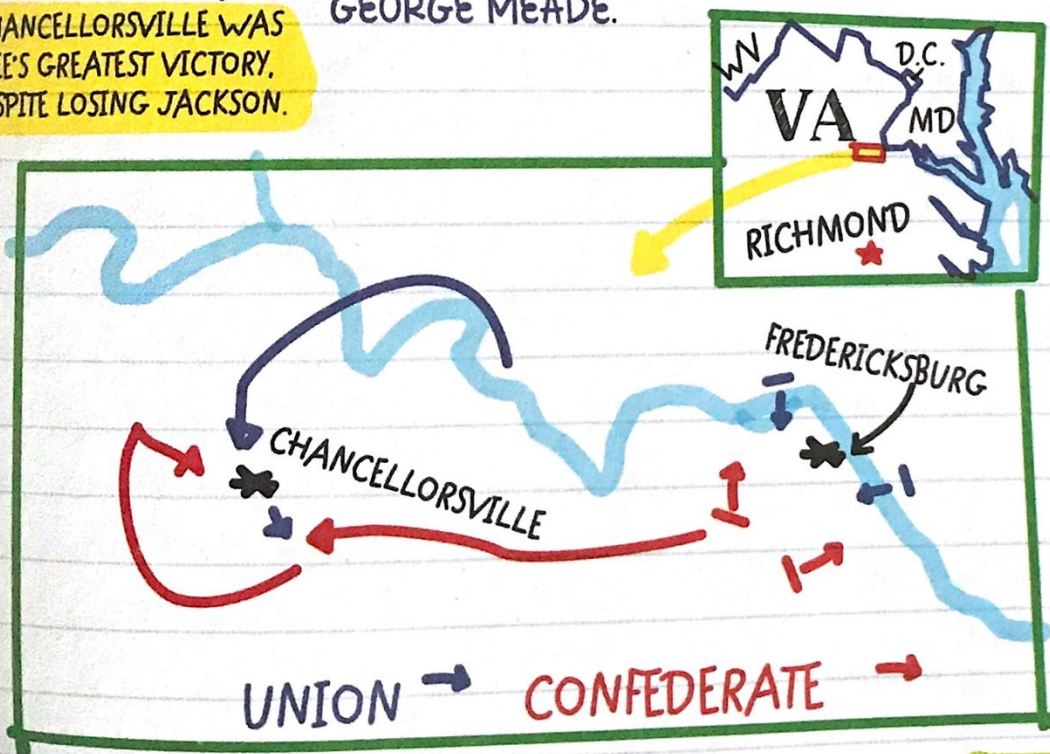 HANCELLORSVILLE WAS
E'S GREATEST VICTORY,
SPITE LOSING JACKSON.
GEORGE MEADE.
WV
D.C.
VA
MD
RICHMOND
FREDERICKSBURG
CHANCELLORSVILLE
UNION
CONFEDERATE